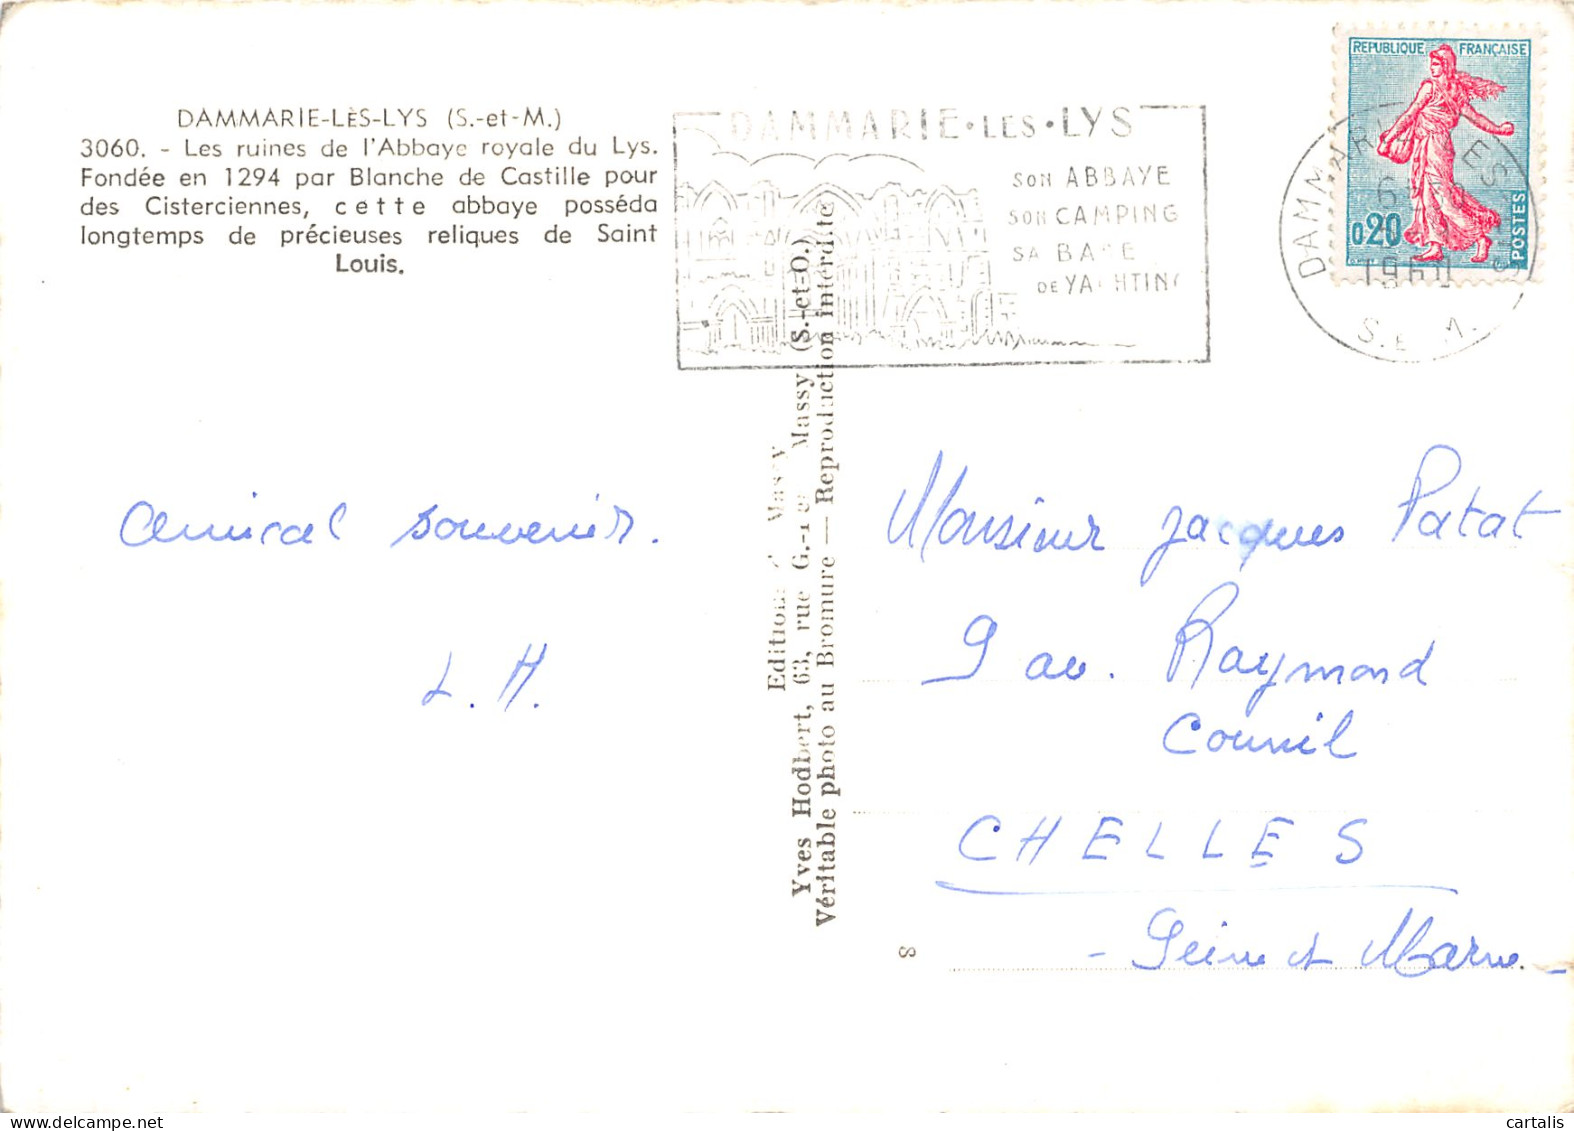 DAMMARIE-LÈS-LYS (S.-et-M.)
3060. - Les ruines de l'Abbaye royale du Lys.
Fondée en 1294 par Blanche de Castille pour
des Cisterciennes, cette abbaye posséda
longtemps de précieuses reliques de Saint
Louis.
DAMMARIE•LES•LYS
SON ABBAYE
SON CAMPING
SA BASE
DE YACHTING
REPUBLIQUE FRANÇAISE
0,20
POSTES
DAMMARIE LES LYS
1960
S. ET M.
Amical souvenir.
L. H.
Editions Massy
Yves Hodbert, 63, rue G.- Massy (S.-et-O.)
Véritable photo au Bromure — Reproduction interdite
Monsieur Jacques Patat
9 av. Raymond
Counil
CHELLES
- Seine et Marne -
8
cartalis